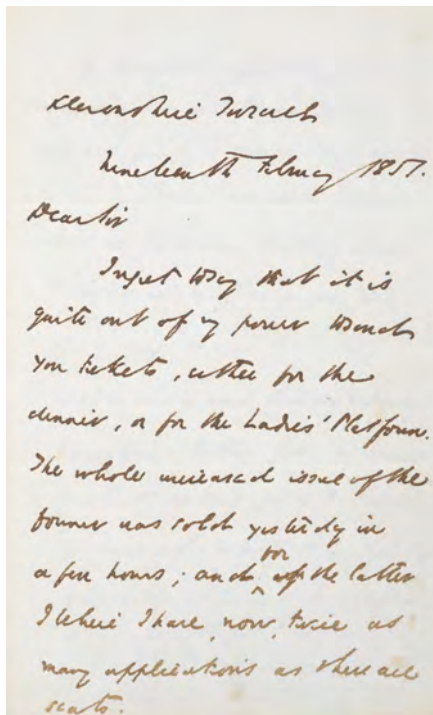 Devonshire Terrace
Nineteenth February 1851.
Dear Sir
I regret to say that it is
quite out of my power to send
you tickets, either for the
dinner, or for the Ladies' Platform.
The whole increased issue of the
former was sold yesterday in
a few hours; and for the latter
I believe I have, now, twice as
many applications as there are
seats.